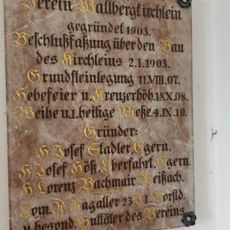 Verein Wallbergkirchlein
gegründet 1903.
Beschlußfaßung über den Bau
des Kirchleins 2.I.1903.
Grundsteinlegung 11.VIII.07.
Hebefeier u. Kreuzerhöh. 18.X.08.
Weihe u. I. heilige Meße. 4.IX.10.
Gründer:
H. Josef Stadler, Egern.
H. Josef Hößl, Überfahrt, Egern.
H. Lorenz Bachmair Weißach.
Kom. R. Ragaller 23 I. Vorstd.
u. besond. Guttäter des Vereins